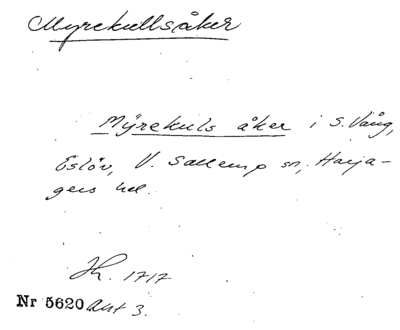 Myrekullsåker
Myrekuls åker i S. Vång,
Eslöv, V. Sallerup sn, Harja-
gers hd.
Jh. 1717
Nr 5620 Akt 3.